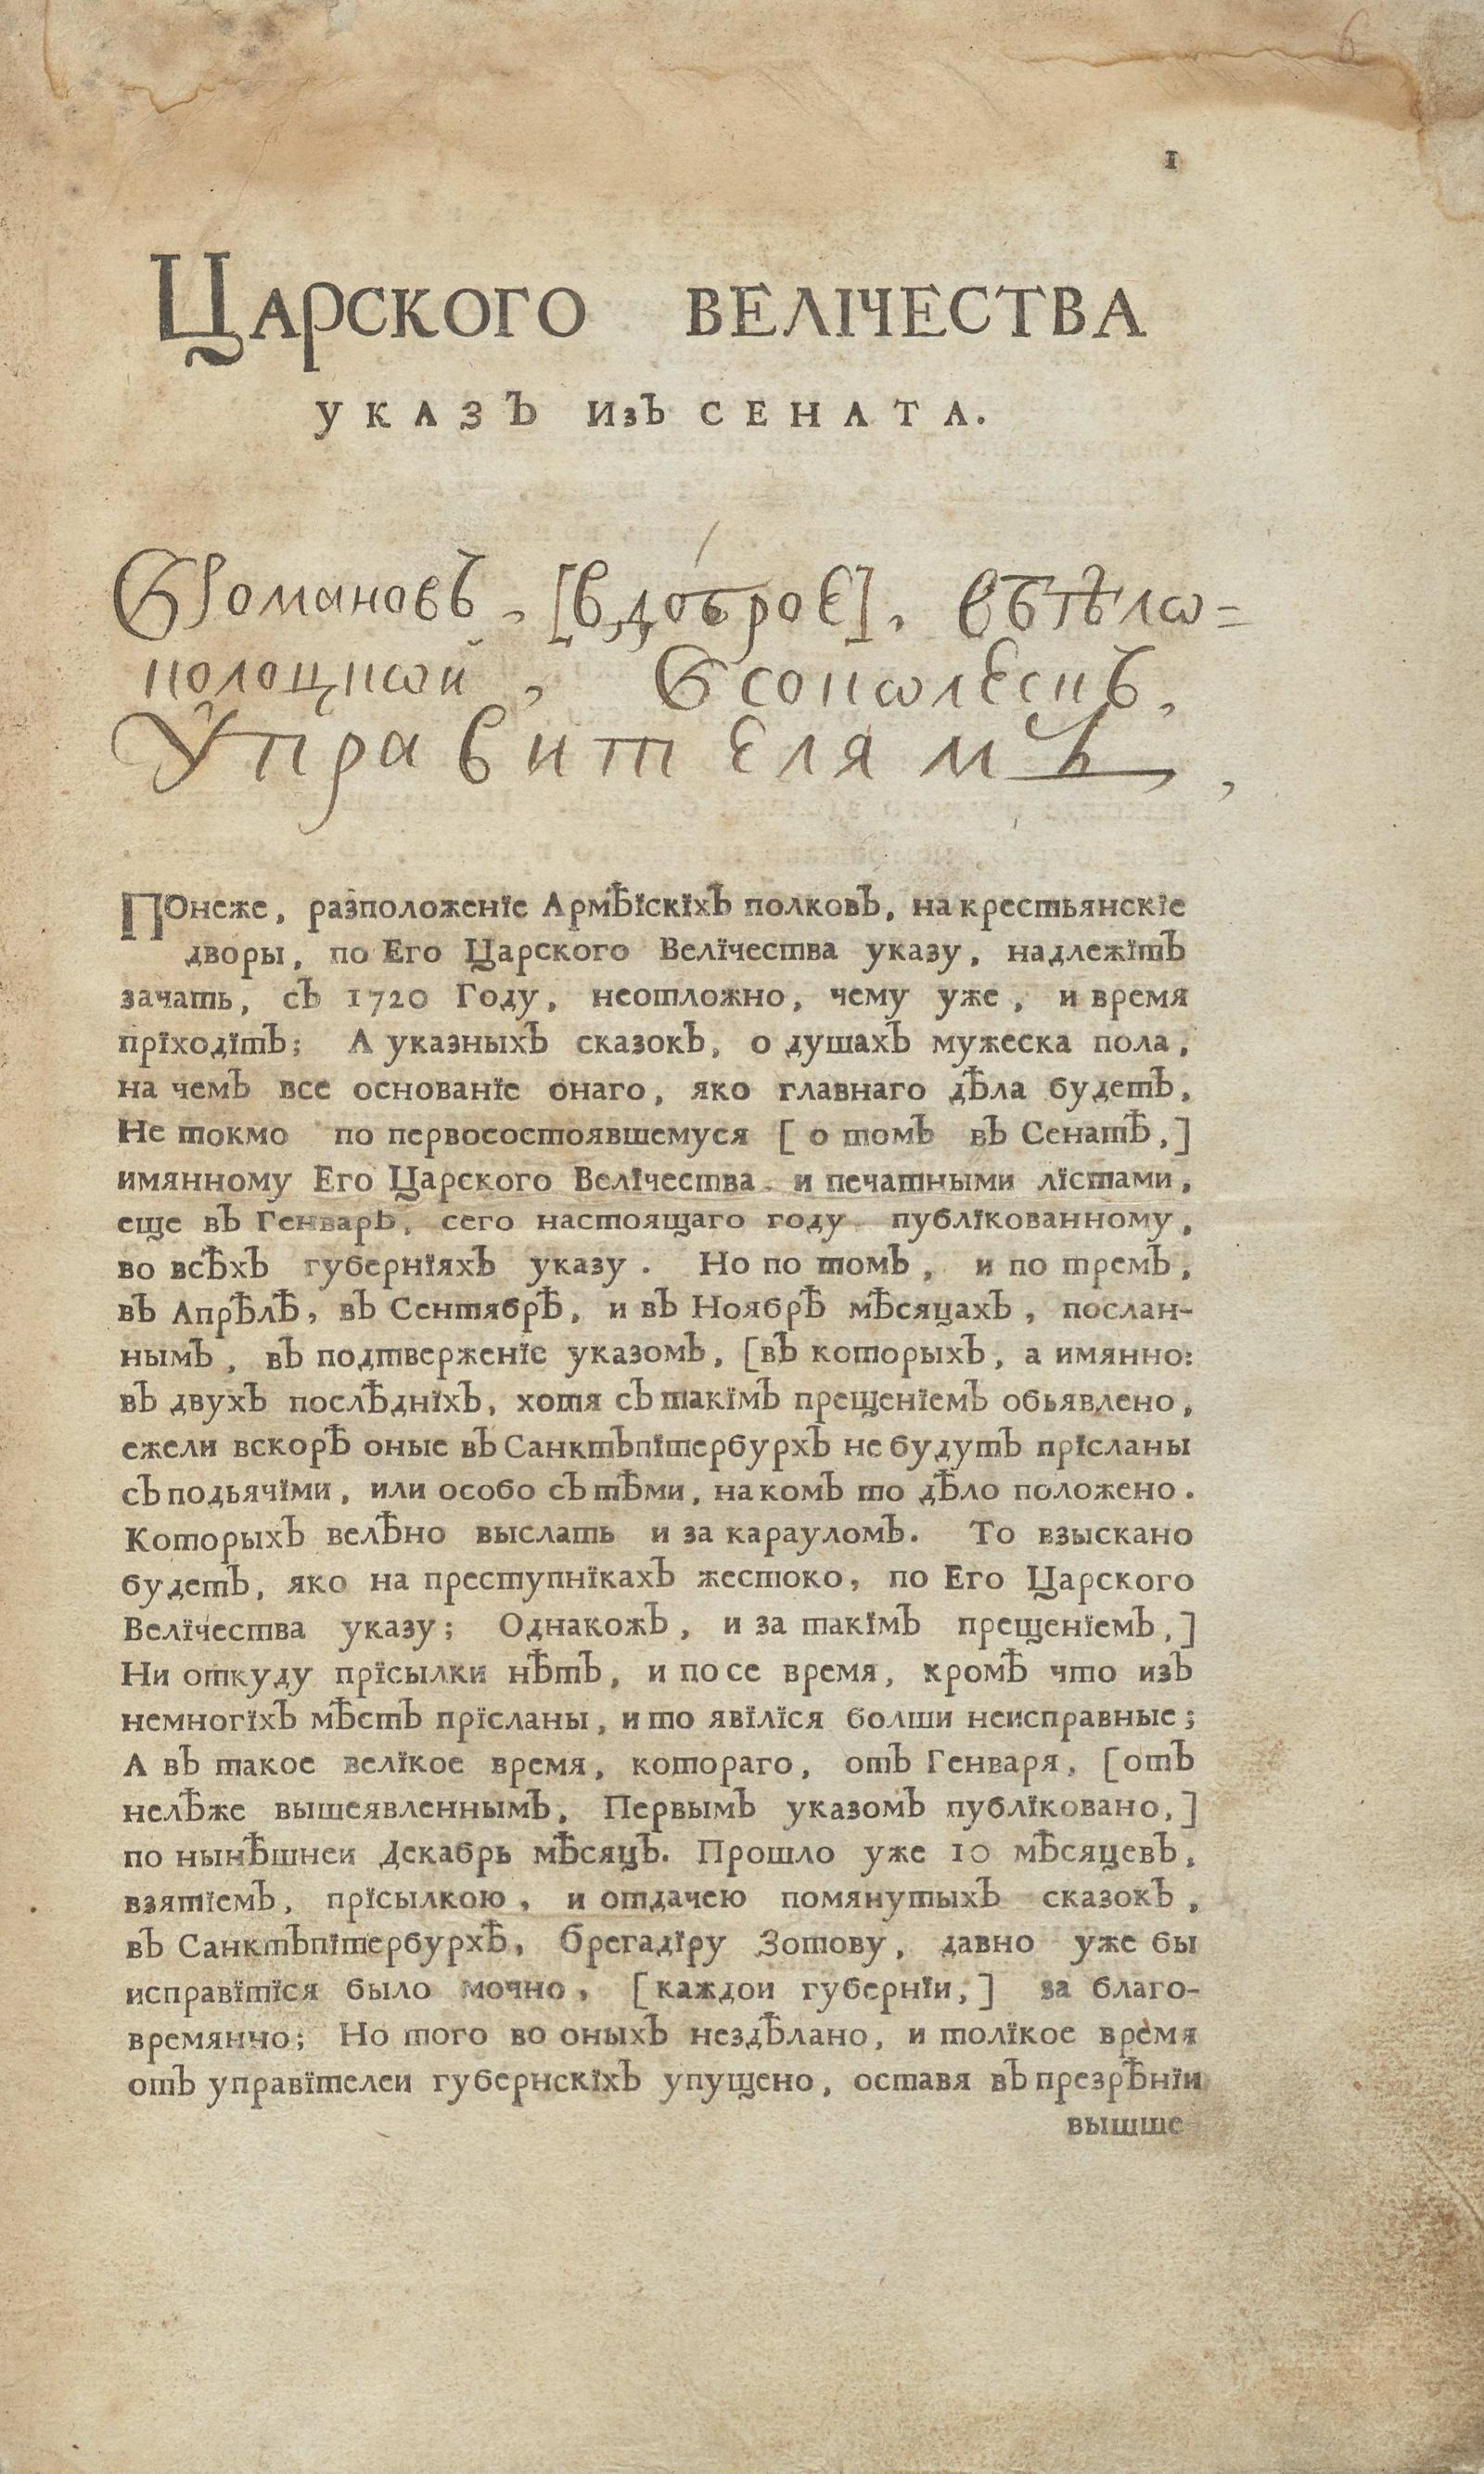 6
1
ЦАРСКОГО ВЕЛІЧЕСТВА
УКАЗЪ ИзЪ СЕНАТА.
В Романовъ, [в доброе], въ бѣло=
полоцкой, В соколескъ,
Управителямъ,
ПОнеже, разположенїе АрмѢїскїхЪ полковЪ, на крестьянскїе
дворы, по Его Царского Велїчества указу, надлежїтЪ
зачать, сЪ 1720 Году, неотложно, чему уже, и время
прїходїтЪ; А указныхЪ сказокЪ, о душахЪ мужеска пола,
на чемЪ все основанїе онаго, яко главнаго дѢла будетЪ,
Не токмо по первосостоявшемуся [ о томЪ вЪ СенатѢ,]
имянному Его Царского Велїчества и печатными лїстами,
еще вЪ ГенварѢ, сего настоящаго году публїкованному,
во всѢхЪ губернїяхЪ указу. Но по томЪ, и по тремЪ,
вЪ АпрѢлѢ, вЪ СентябрѢ, и вЪ НоябрѢ мѢсяцахЪ, послан-
нымЪ, вЪ подтверженїе указомЪ, [вЪ которыхЪ, а имянно:
вЪ двухЪ послѢднїхЪ, хотя сЪ такїмЪ прещенїемЪ обьявлено,
ежели вскорѢ оные вЪ СанктЪпїтербурхЪ не будутЪ прїсланы
сЪ подьячїми, или особо сЪ тѢми, на комЪ то дѢло положено.
КоторыхЪ велѢно выслать и за карауломЪ. То взыскано
будетЪ, яко на преступнїкахЪ жестоко, по Его Царского
Велїчества указу; ОднакожЪ, и за такїмЪ прещенїемЪ,]
Ни откуду прїсылки нѢтЪ, и по се время, кромѢ что изЪ
немногїхЪ мѢстЪ прїсланы, и то явїлїся болши неисправные;
А вЪ такое велїкое время, котораго, отЪ Генваря, [отЪ
нелѢже вышеявленнымЪ, ПервымЪ указомЪ публїковано,]
по нынѢшнеи Декабрь мѢсяцЪ. Прошло уже 10 мѢсяцевЪ,
взятїемЪ, прїсылкою, и отдачею помянутыхЪ сказокЪ,
вЪ СанктЪпїтербурхѢ, брегадїру Зотову, давно уже бы
исправїтїся было мочно, [каждои губернїи,] за благо-
времянно; Но того во оныхЪ нездѢлано, и толїкое время
отЪ управїтелеи губернскїхЪ упущено, оставя вЪ презрѢнїи
вышше